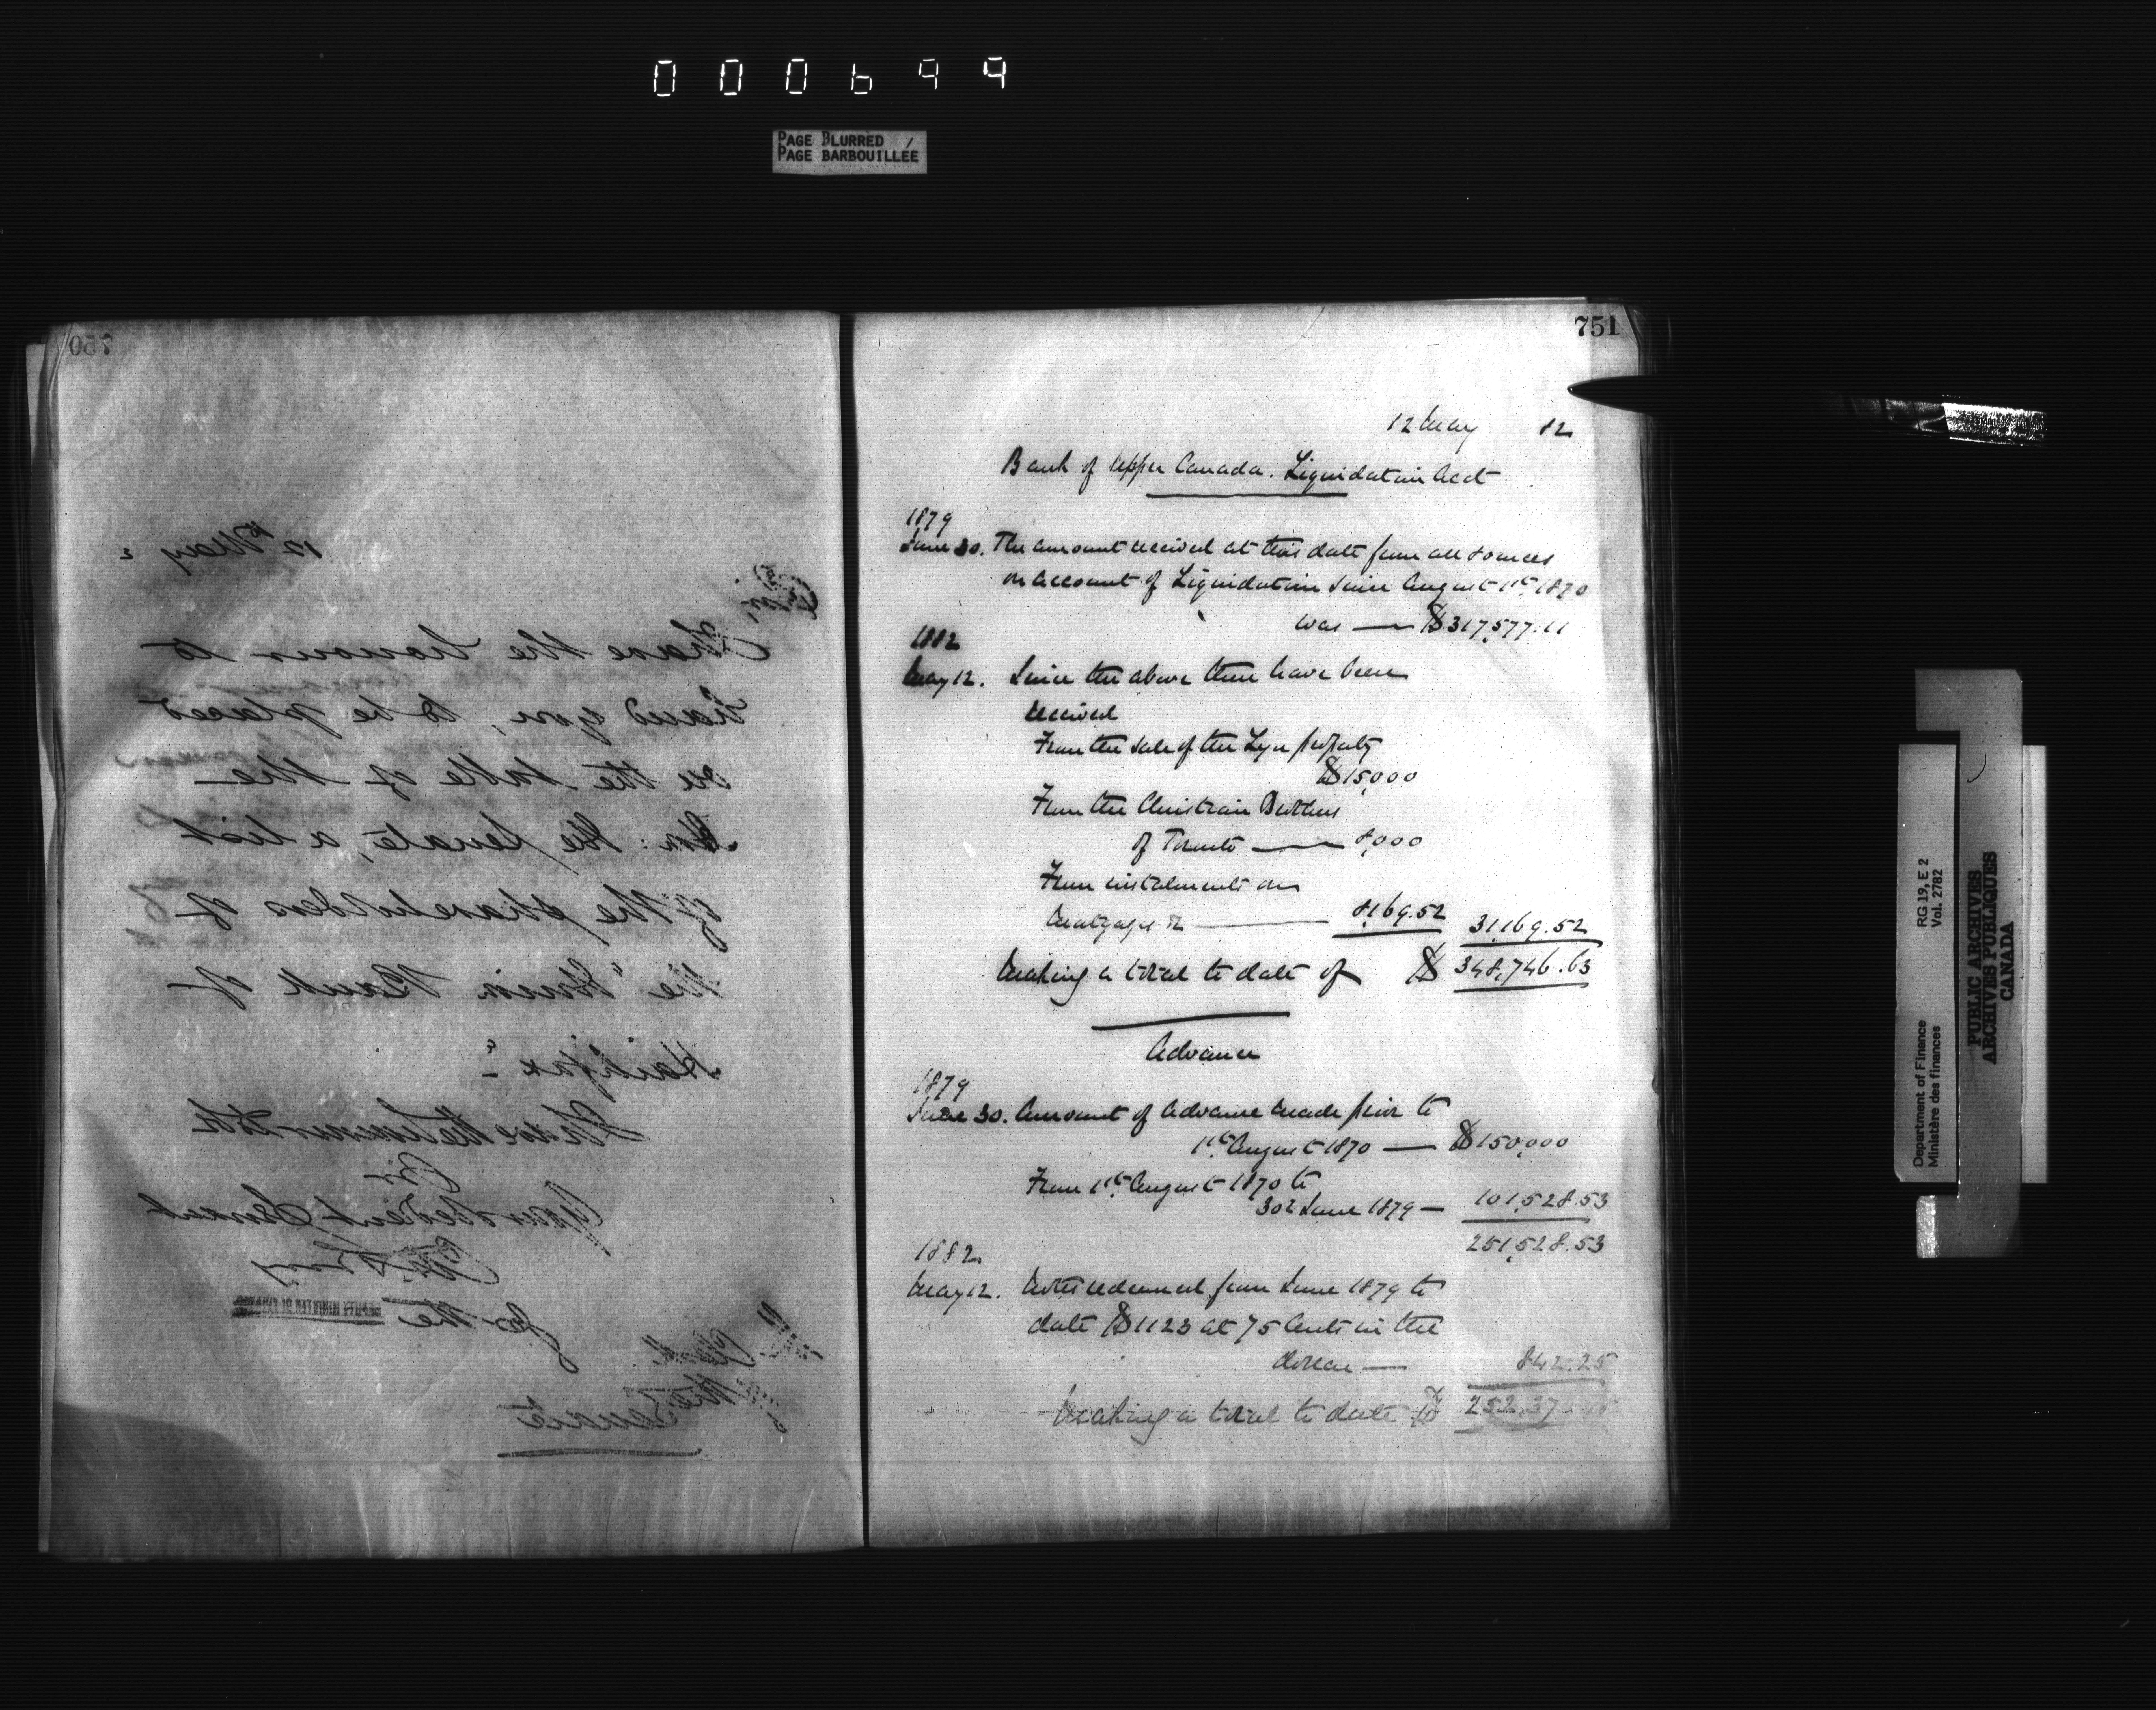 000699
PAGE BLURRED
PAGE BARBOUILLÉE
750
12th May 2
Sir,
I have the honour to
hand you, to be placed
on the table of the
Hon: the Senate, a list
of the shareholders of
the "Union Bank of
Halifax"
I have the honour to be
Sir
Your obedient Servant
for the
DEPUTY MINISTER OF FINANCE
The Clerk
of the Senate
751
12 May 82
Bank of Upper Canada. Liquidation Acct
1879
June 30. The amount received at this date from all sources
on account of Liquidation since August 1st 1870
was — $317,577.11
1882
May 12. Since the above there have been
received
From the sale of the Lyn property
$15,000
From the Christian Brothers
of Toronto — 8,000
From instalments on
Mortgages &c — 8,169.52 31,169.52
Making a total to date of $ 348,746.63
Advance
1879
June 30. Amount of Advance made prior to
1st August 1870 — $150,000
From 1st August 1870 to
30th June 1879 — 101,528.53
251,528.53
1882
May 12. Notes redeemed from June 1879 to
date $1123 at 75 Cents in the
dollar — 842.25
Making a total to date $
Department of Finance
Ministère des finances
RG 19, E 2
Vol. 2782
PUBLIC ARCHIVES
ARCHIVES PUBLIQUES
CANADA